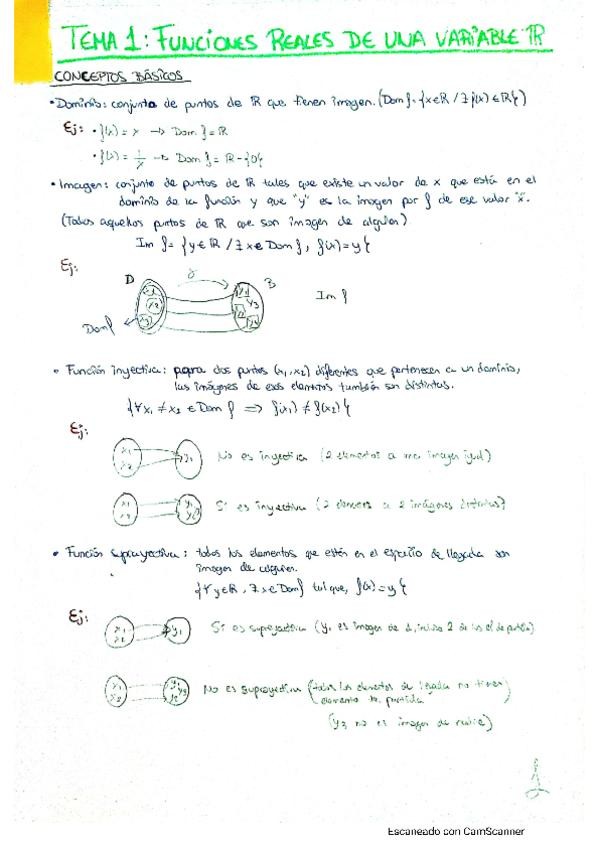 TEMA 1: FUNCIONES REALES DE UNA VARIABLE ℝ
CONCEPTOS BÁSICOS
• Dominio: conjunto de puntos de ℝ que tienen imagen. (Dom f = {x∈ℝ / ∃ f(x) ∈ ℝ})
Ej: • f(x) = x → Dom f = ℝ
• f(x) = 1/x → Dom f = ℝ - {0}
• Imagen: conjunto de puntos de ℝ tales que existe un valor de x que está en el
dominio de la función y que "y" es la imagen por f de ese valor "x".
(Todos aquellos puntos de ℝ que son imagen de alguien).
Im f = {y ∈ ℝ / ∃ x ∈ Dom f, f(x) = y}
Ej:
D f B
x1 x2 x3 y1 y3 y2 y4
Im f
Dom f
• Función inyectiva: para dos puntos (x1, x2) diferentes que pertenecen a un dominio,
las imágenes de esos elementos también son distintas.
{∀ x1 ≠ x2 ∈ Dom f ⇒ f(x1) ≠ f(x2)}
Ej:
x1 x2 y1 No es inyectiva (2 elementos a una imagen igual)
x1 x2 y1 y2 Si es inyectiva (2 elements a 2 imágenes distintas)
• Función suprayectiva: todos los elementos que estén en el espacio de llegada son
imagen de alguien.
{∀ y ∈ ℝ, ∃ x ∈ Dom f tal que, f(x) = y}
Ej:
x1 x2 y1 Si es suprayectiva (y1 es imagen de 1, incluso 2 de los el de partida)
x1 x2 y1 y3 y2 No es suprayectiva (todos los elementos de llegada no tienen
elemento de partida)
(y3 no es imagen de nadie)
Escaneado con CamScanner